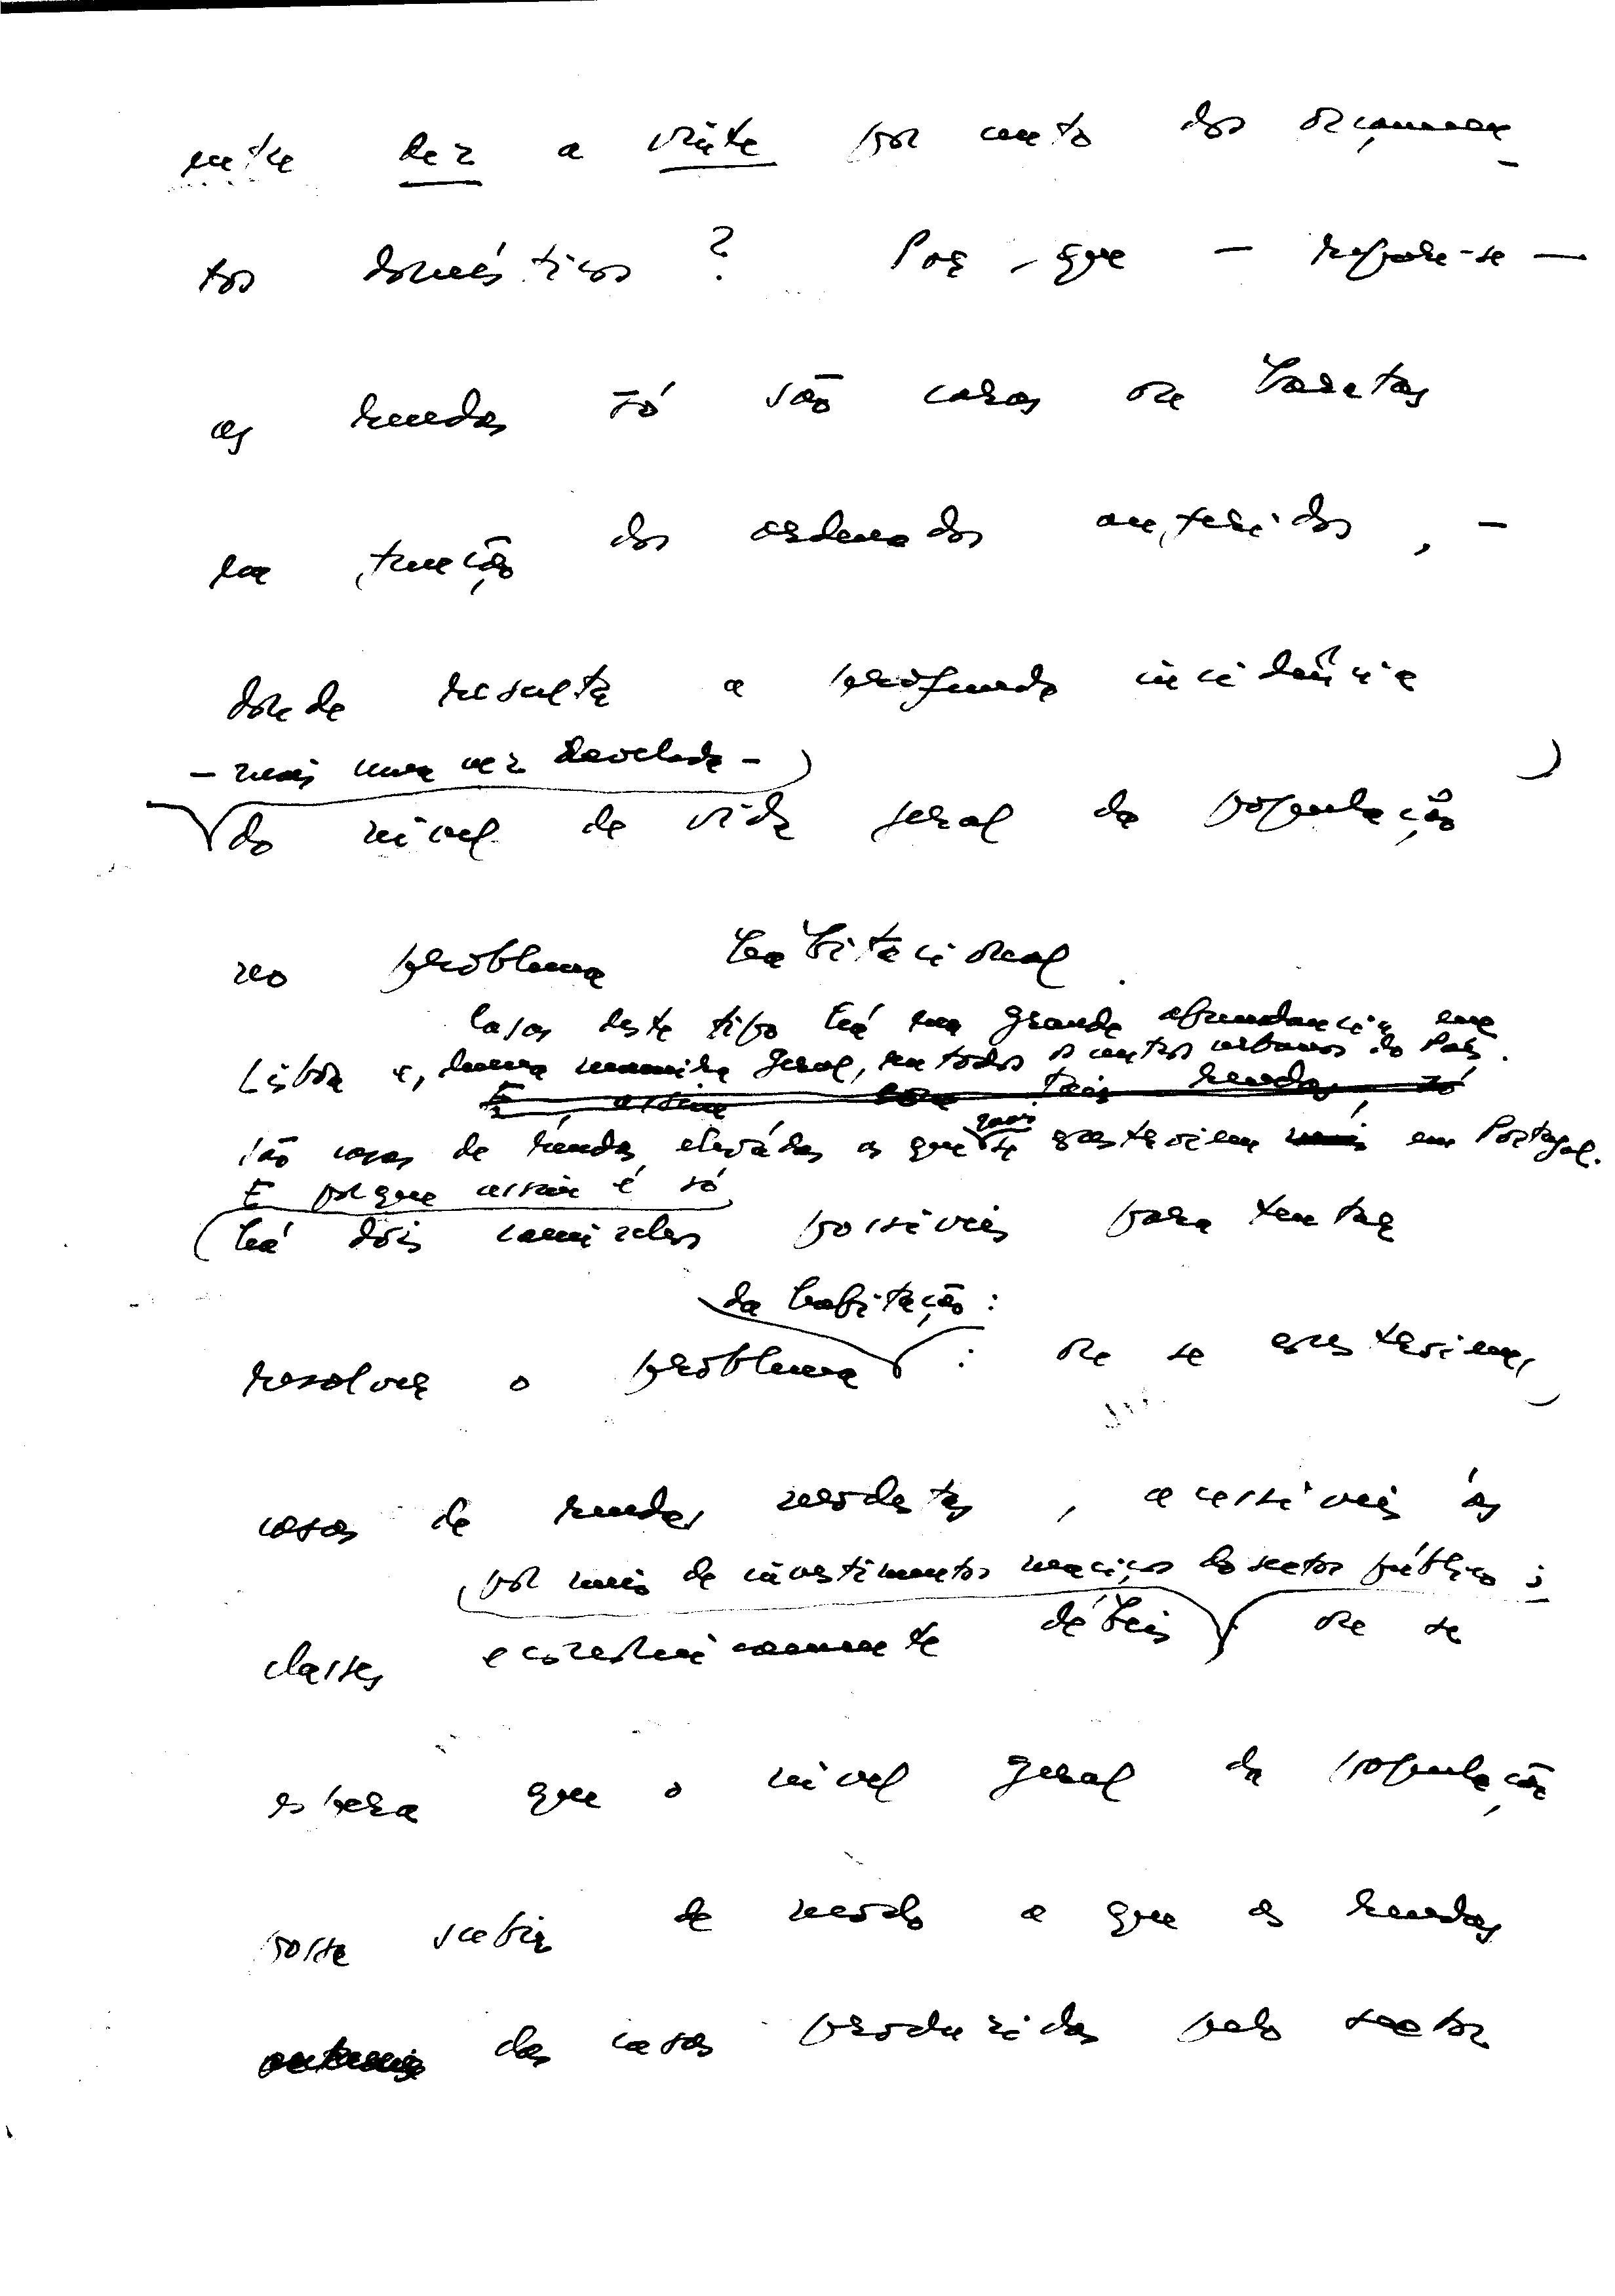 entre dez a vinte por cento dos orçamen-
tos domésticos? Por que — repare-se —
as rendas só são caras ou baratas
em função dos ordenados auferidos, —
donde resulta a profunda incidência
— mais uma vez desvelada —
do nível de vida geral da população
no problema habitacional.
Casas deste tipo há em grande abundancia em
Lisboa e, duma maneira geral, em todos os centros urbanos do País.
E assim com tais rendas só
são casas de rendas elevadas as que mais se constroiem em Portugal.
E porque assim é só
há dois caminhos possíveis para tentar
da habitação:
resolver o problema : ou se constroiem,
casas de rendas modestas, acessíveis às
por meio de investimentos maciços do sector público;
classes economicamente débeis ou se
espera que o nível geral da população
possa subir de modo a que as rendas
das casas produzidas pelo sector